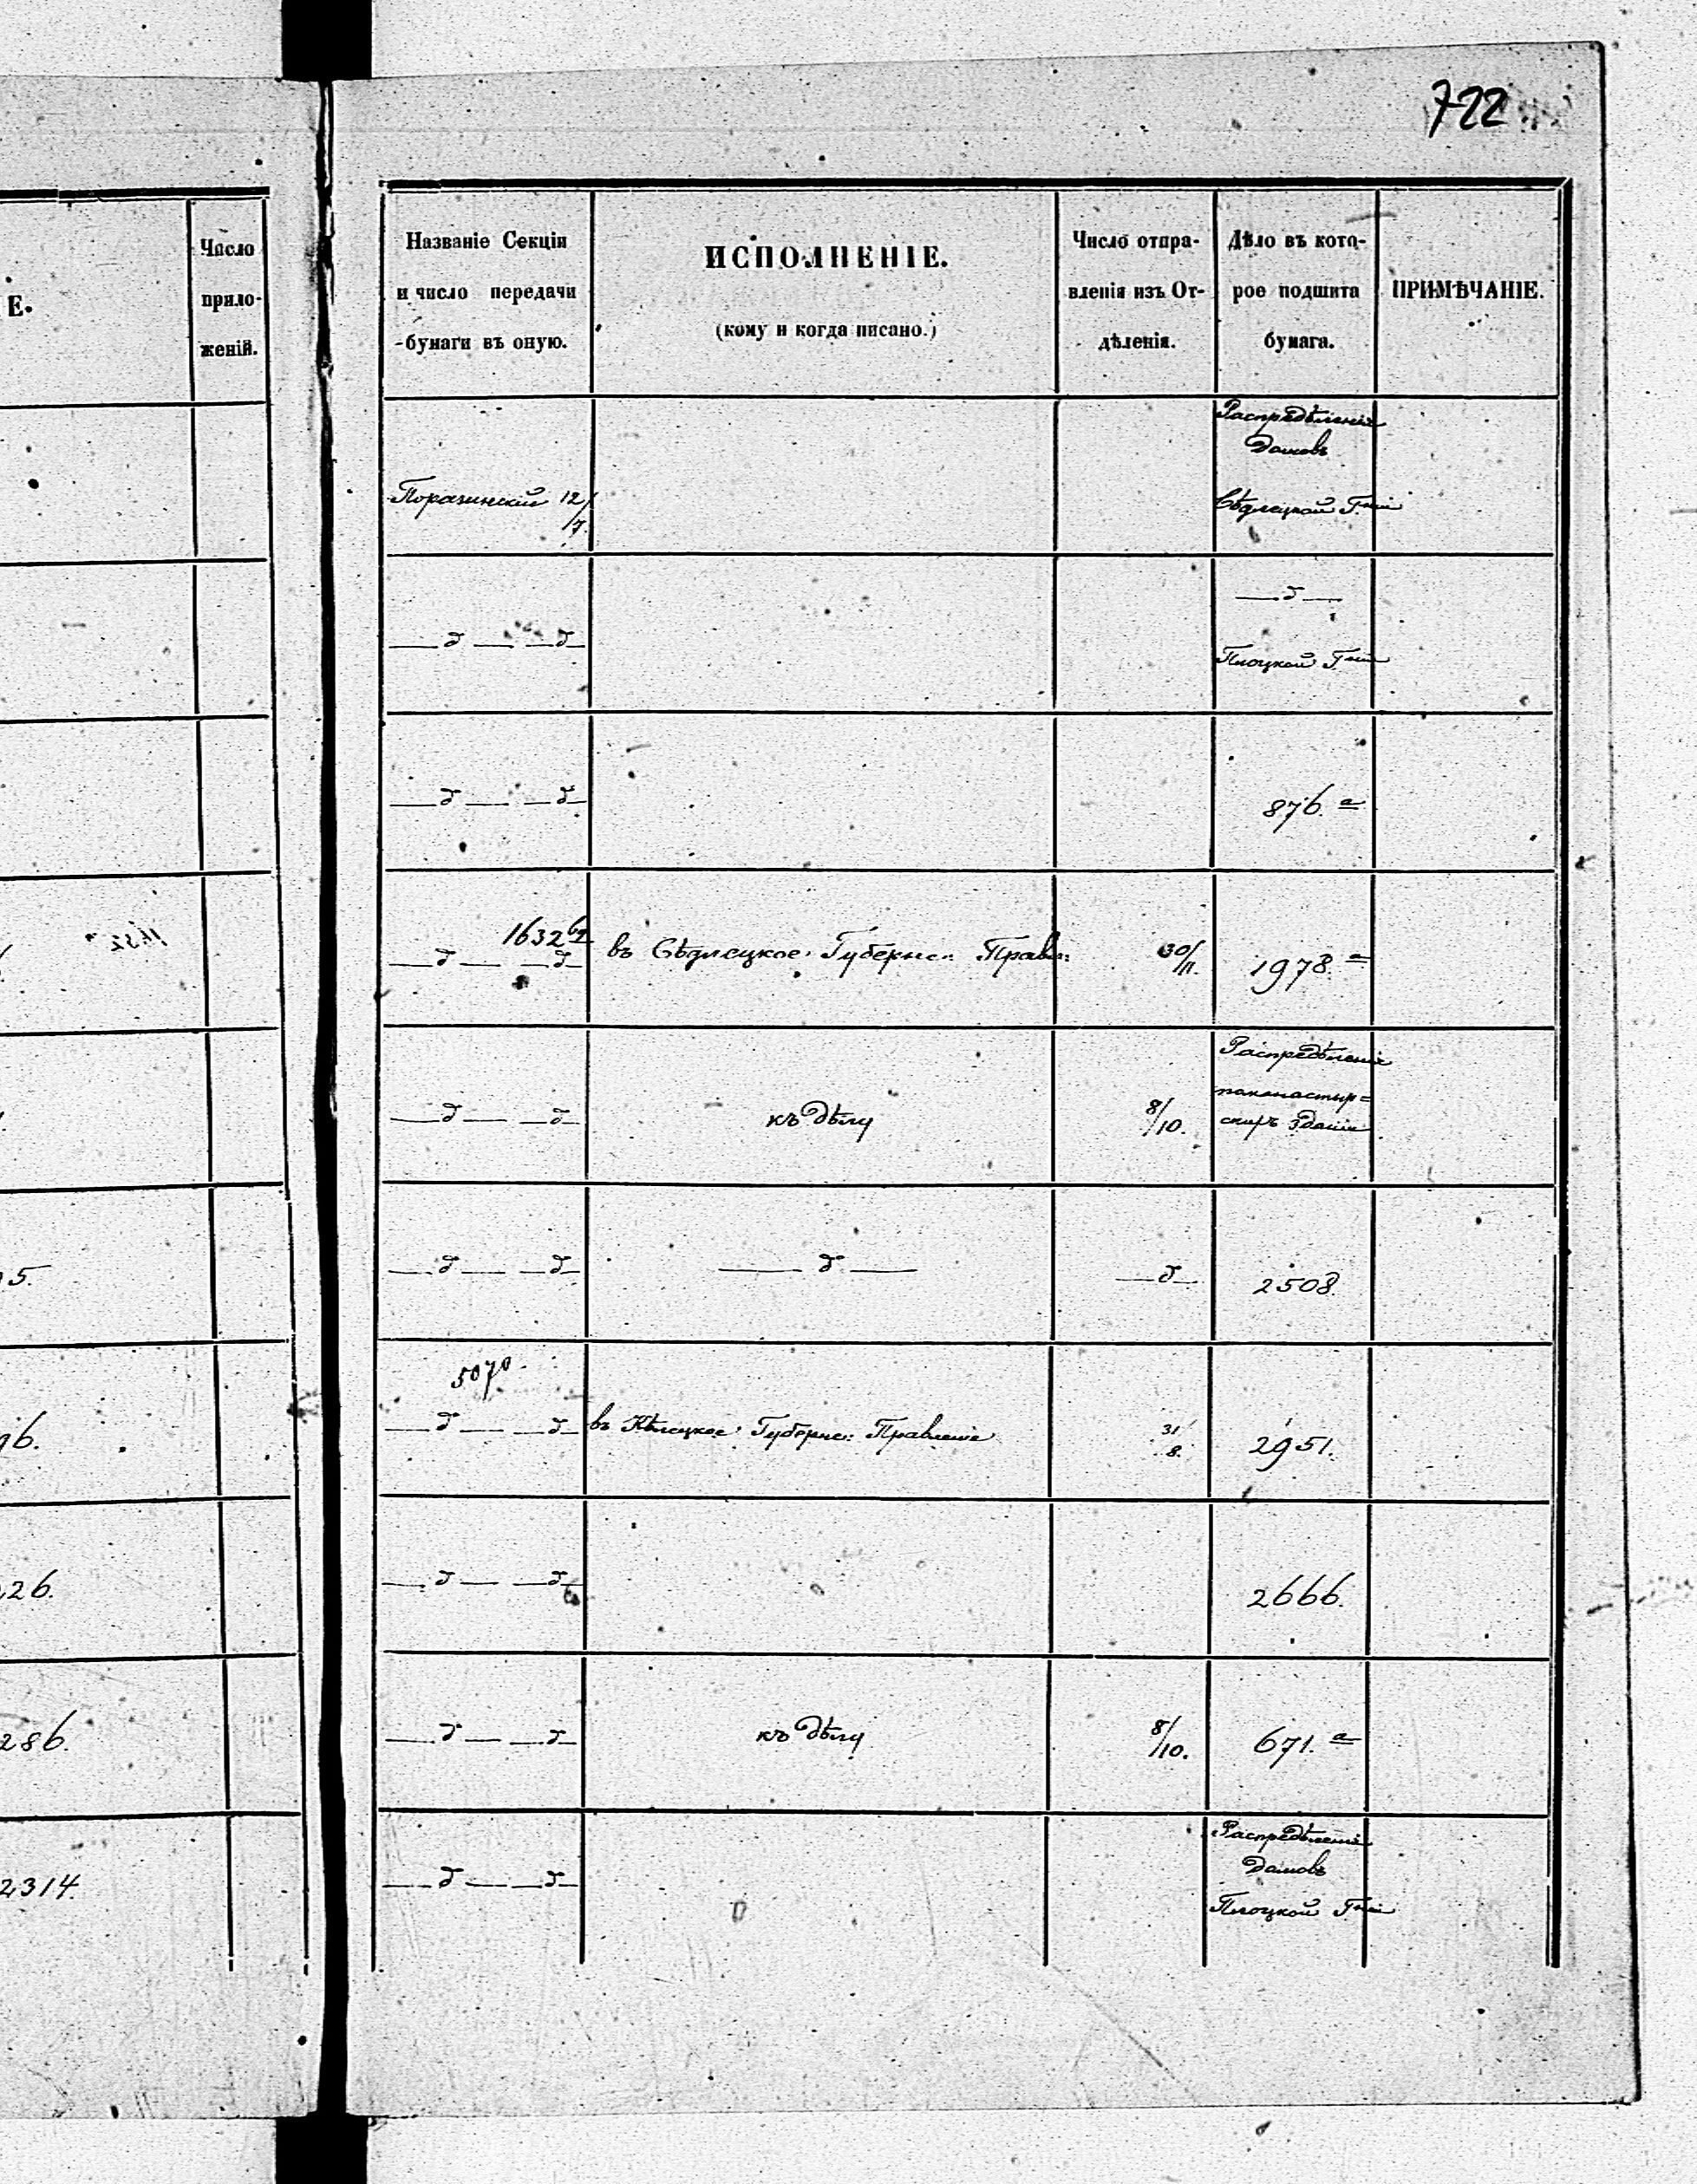 722
Е.
Число
прило-
женій.
5.
96.
26.
286.
2314.
Названіе Секціи
и число передачи
бумаги въ оную.
ИСПОЛНЕНІЕ.
(кому и когда писано.)
Число отпра-
вленія изъ От-
дѣленія.
Дѣло въ кото-
рое подшита
бумага.
ПРИМѢЧАНІЕ.
Поразинскій 12/7.
Распредѣленія
Домовъ
Сѣдлецкой Г-ніи
—д— —д—
—д—
Плоцкой Г-ніи
—д— —д—
876.а
1632
—д— —д—
въ Сѣдлецкое Губернс: Правл:
30/11.
1978.а
—д— —д—
къ дѣлу
8/10.
Распредѣленія
помонастыр=
скихъ зданій
—д— —д—
—д—
—д—
2508.
5070
—д— —д—
въ Кѣлецкое Губернс: Правленіе
31/8.
2951.
—д— —д—
2666.
—д— —д—
къ дѣлу
8/10.
671.а
—д— —д—
Распредѣленія
Домовъ
Плоцкой Г-ніи